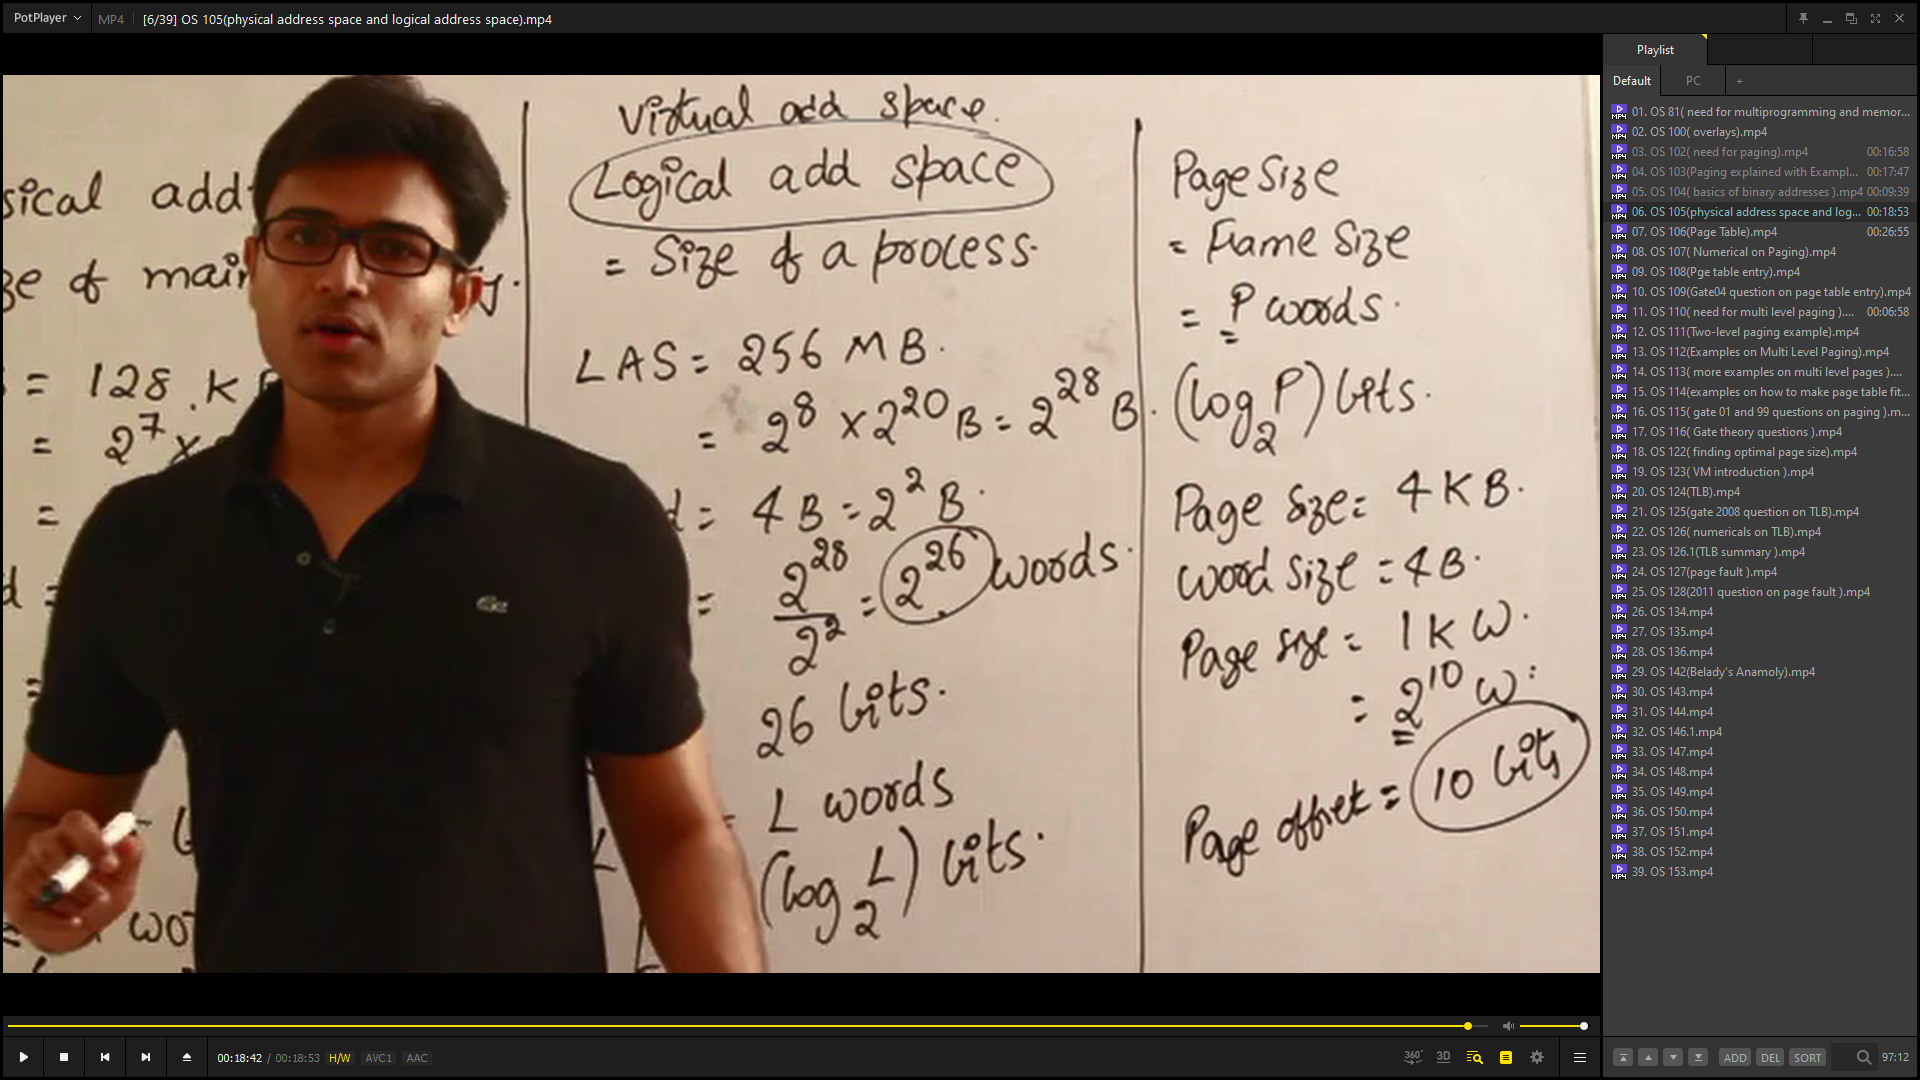 PotPlayer
MP4
[6/39] OS 105(physical address space and logical address space).mp4
sical add
ze of main
y.
= 128 K
= 2^7 x
=
d =
=
wo
Virtual add space.
Logical add space
= Size of a process.
LAS = 256 MB.
= 2^8 x 2^20 B = 2^28 B.
d = 4B = 2^2 B.
= 2^28 / 2^2 = 2^26 words.
26 bits.
= L words
(log2 L) bits.
Page Size
= Frame Size
= P words.
(log2 P) bits.
Page Size = 4KB.
Word Size = 4B.
Page size = 1K W.
= 2^10 W.
Page offset = 10 bits
00:18:42 / 00:18:53 H/W AVC1 AAC
360° 3D
Playlist
Default PC +
01. OS 81( need for multiprogramming and memor...
02. OS 100( overlays).mp4
03. OS 102( need for paging).mp4 00:16:58
04. OS 103(Paging explained with Exampl... 00:17:47
05. OS 104( basics of binary addresses ).mp4 00:09:39
06. OS 105(physical address space and log... 00:18:53
07. OS 106(Page Table).mp4 00:26:55
08. OS 107( Numerical on Paging).mp4
09. OS 108(Pge table entry).mp4
10. OS 109(Gate04 question on page table entry).mp4
11. OS 110( need for multi level paging ).... 00:06:58
12. OS 111(Two-level paging example).mp4
13. OS 112(Examples on Multi Level Paging).mp4
14. OS 113( more examples on multi level pages )....
15. OS 114(examples on how to make page table fit...
16. OS 115( gate 01 and 99 questions on paging ).m...
17. OS 116( Gate theory questions ).mp4
18. OS 122( finding optimal page size).mp4
19. OS 123( VM introduction ).mp4
20. OS 124(TLB).mp4
21. OS 125(gate 2008 question on TLB).mp4
22. OS 126( numericals on TLB).mp4
23. OS 126.1(TLB summary ).mp4
24. OS 127(page fault ).mp4
25. OS 128(2011 question on page fault ).mp4
26. OS 134.mp4
27. OS 135.mp4
28. OS 136.mp4
29. OS 142(Belady's Anamoly).mp4
30. OS 143.mp4
31. OS 144.mp4
32. OS 146.1.mp4
33. OS 147.mp4
34. OS 148.mp4
35. OS 149.mp4
36. OS 150.mp4
37. OS 151.mp4
38. OS 152.mp4
39. OS 153.mp4
ADD DEL SORT 97:12